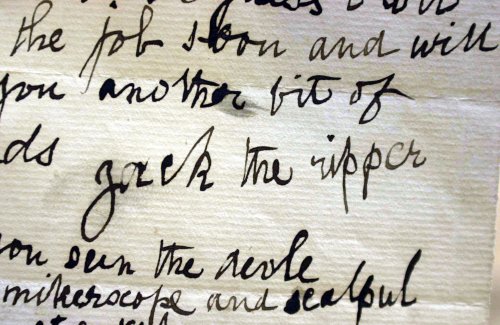 the job soon and will
you another bit of
ds Jack the ripper
you seen the devle
mikerscope and scalpul